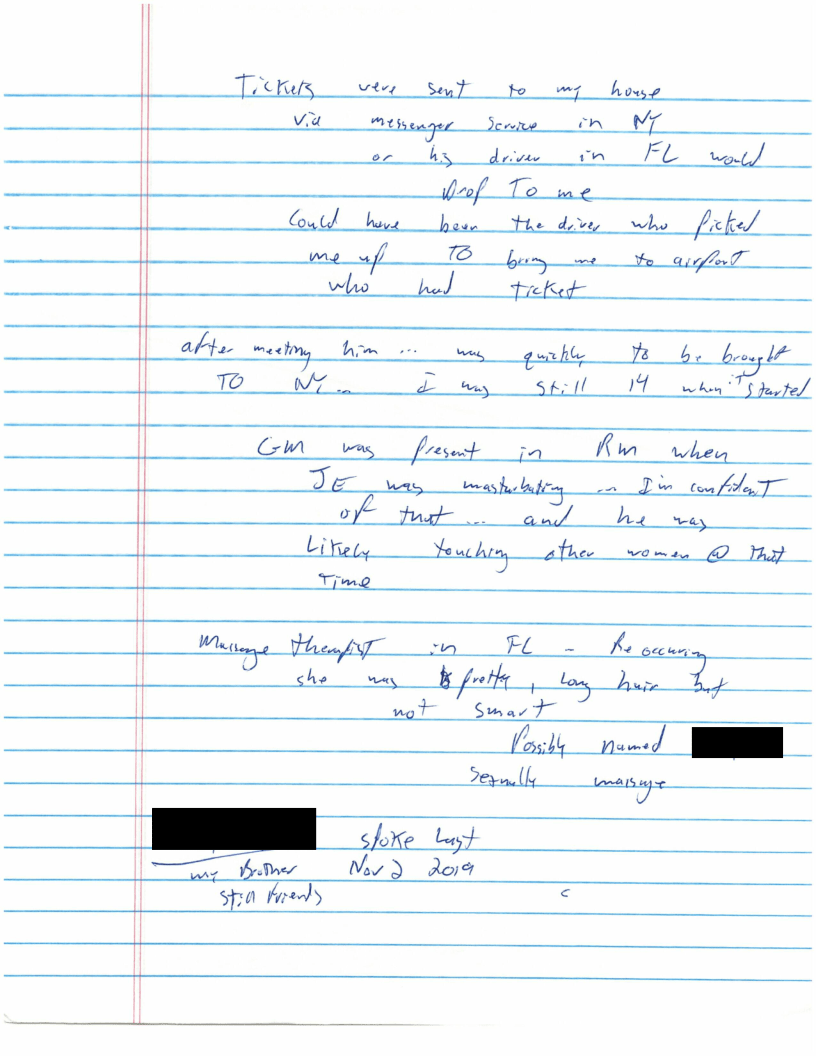 Tickets were sent to my house
via messenger service in NY
or his driver in FL would
Drop To me
Could have been the driver who picked
me up TO bring me to airport
who had ticket
after meeting him ... was quickly to be brought
TO NY... I was still 14 when it started
GM was present in Rm when
JE was masturbating ... I'm confident
of that ... and he was
Likely touching other women @ that
time
Massage therapist in FL - Reoccuring
she was pretty, long hair but
not smart
Possibly named
Sexually massage
spoke last
my Brother Nov 2 2019
still friends
c